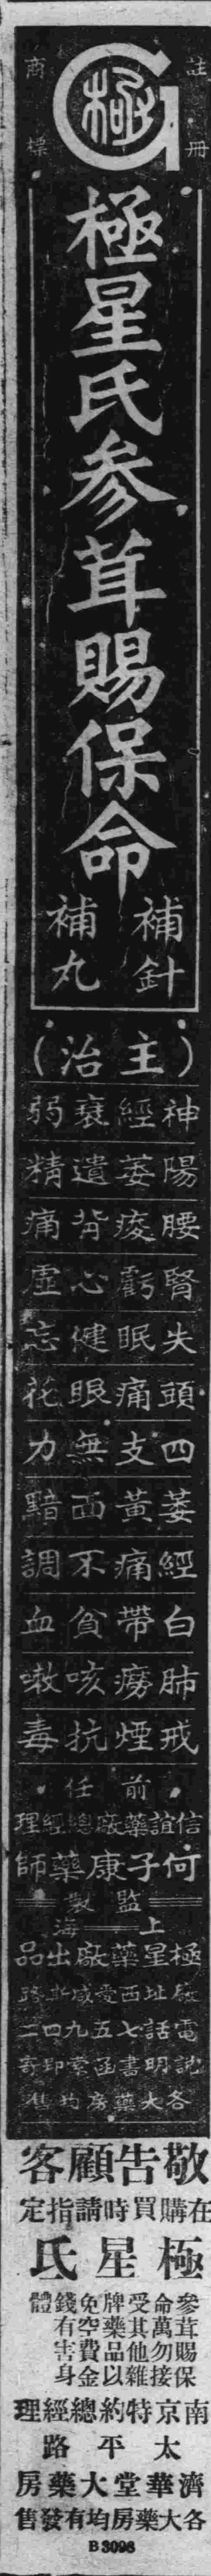 註冊
商標
極
極星氏參茸賜保命
補針
補丸
（主治）
神經衰弱
陽萎遺精
腰痠背痛
腎虧心虛
失眠健忘
頭痛眼花
四支無力
萎黃面黯
經痛不調
白帶貧血
肺癆咳嗽
戒煙抗毒
前任
信誼藥廠總經理
何子康藥師
監製
上海
極星藥廠出品
廠址西愛咸斯路
電話七五九四二
說明書函索即寄
各大藥房均售
敬告顧客
在購買時請指定
極星氏
參茸賜保
命萬勿接
受其他雜
牌藥品以
免空費金
錢有害身
體
南京特約總經理
太平路
濟華堂大藥房
各大藥房均有發售
B3098